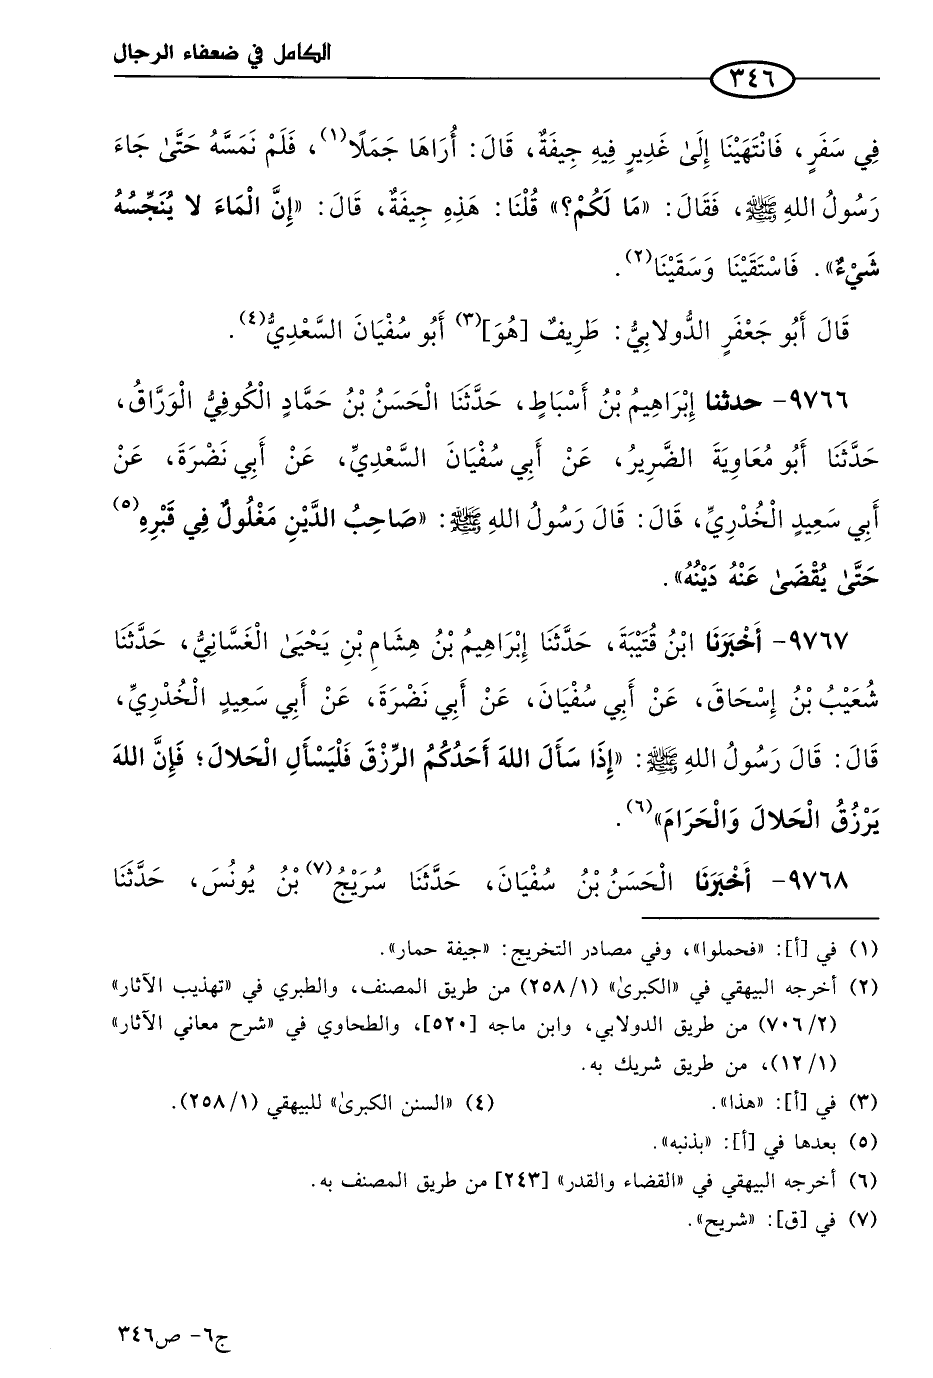 الكامل في ضعفاء الرجال
٣٤٦
فِي سَفَرٍ، فَانْتَهَيْنَا إِلَىٰ غَدِيرٍ فِيهِ جِيفَةٌ، قَالَ: أُرَاهَا جَمَلًا(١)، فَلَمْ نَمَسَّهُ حَتَّىٰ جَاءَ
رَسُولُ اللهِ ﷺ، فَقَالَ: «مَا لَكُمْ؟» قُلْنَا: هَذِهِ جِيفَةٌ، قَالَ: «إِنَّ الْمَاءَ لا يُنَجِّسُهُ
شَيْءٌ». فَاسْتَقَيْنَا وَسَقَيْنَا(٢).
قَالَ أَبُو جَعْفَرٍ الدُّولابِيُّ: طَرِيفٌ [هُوَ](٣) أَبُو سُفْيَانَ السَّعْدِيُّ(٤).
٩٧٦٦- حدثنا إِبْرَاهِيمُ بْنُ أَسْبَاطٍ، حَدَّثَنَا الْحَسَنُ بْنُ حَمَّادٍ الْكُوفِيُّ الْوَرَّاقُ،
حَدَّثَنَا أَبُو مُعَاوِيَةَ الضَّرِيرُ، عَنْ أَبِي سُفْيَانَ السَّعْدِيِّ، عَنْ أَبِي نَضْرَةَ، عَنْ
أَبِي سَعِيدٍ الْخُدْرِيِّ، قَالَ: قَالَ رَسُولُ اللهِ ﷺ: «صَاحِبُ الدَّيْنِ مَغْلُولٌ فِي قَبْرِهِ(٥)
حَتَّىٰ يُقْضَىٰ عَنْهُ دَيْنُهُ».
٩٧٦٧- أَخْبَرَنَا ابْنُ قُتَيْبَةَ، حَدَّثَنَا إِبْرَاهِيمُ بْنُ هِشَامِ بْنِ يَحْيَىٰ الْغَسَّانِيُّ، حَدَّثَنَا
شُعَيْبُ بْنُ إِسْحَاقَ، عَنْ أَبِي سُفْيَانَ، عَنْ أَبِي نَضْرَةَ، عَنْ أَبِي سَعِيدٍ الْخُدْرِيِّ،
قَالَ: قَالَ رَسُولُ اللهِ ﷺ: «إِذَا سَأَلَ اللهَ أَحَدُكُمُ الرِّزْقَ فَلْيَسْأَلِ الْحَلالَ؛ فَإِنَّ اللهَ
يَرْزُقُ الْحَلالَ وَالْحَرَامَ»(٦).
٩٧٦٨- أَخْبَرَنَا الْحَسَنُ بْنُ سُفْيَانَ، حَدَّثَنَا سُرَيْجُ(٧) بْنُ يُونُسَ، حَدَّثَنَا
(١) في [أ]: «فحملوا»، وفي مصادر التخريج: «جيفة حمار».
(٢) أخرجه البيهقي في «الكبرىٰ» (١/ ٢٥٨) من طريق المصنف، والطبري في «تهذيب الآثار»
(٢/ ٧٠٦) من طريق الدولابي، وابن ماجه [٥٢٠]، والطحاوي في «شرح معاني الآثار»
(١/ ١٢)، من طريق شريك به.
(٣) في [أ]: «هذا». (٤) «السنن الكبرىٰ» للبيهقي (١/ ٢٥٨).
(٥) بعدها في [أ]: «بذنبه».
(٦) أخرجه البيهقي في «القضاء والقدر» [٢٤٣] من طريق المصنف به.
(٧) في [ق]: «شريح».
ج٦- ص٣٤٦